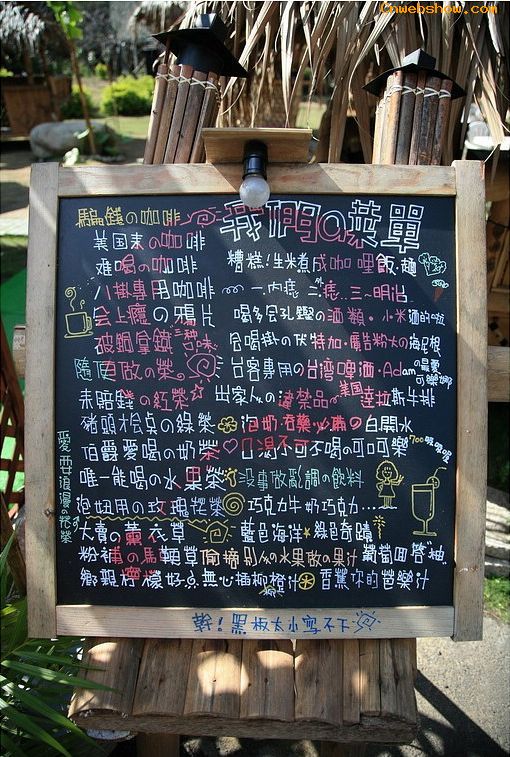 Cnwebshow.com
騙錢の咖啡
我們の菜單
美国来の咖啡
难喝の咖啡
糟糕!生米煮成咖哩飯.麵
八掛專用咖啡
一.内痣 二 三.明治
会上癮の鴉片
喝多会乳の酒類.小米酒的啦
破銅拿鐵 三种味
会喝掛の伏特加.廣告粉大の海尼根
隨便自做の茶
台客專用の台湾啤酒.Adamの最愛可樂娜
未賠錢の紅茶
出家人の違禁品 美国達拉斯牛排
豬頭 の綠茶
白開水
伯爵愛喝の奶茶
口渴不可不喝の可可樂 700 吸吸呢
唯一能喝の水果茶
没事做乱調の飲料
泡妞用の玫瑰花茶
巧克力牛奶巧克力......
愛西浪漫の花茶
大賣の薰衣草
藍色海洋 綠色奇蹟
粉補の馬鞭草
偷摘別人の水果做の果汁
葡萄回答"柚"
鄉親檸檬好点
無心插柳橙汁
香蕉你的芭樂汁
幹!黑板太小寫不下